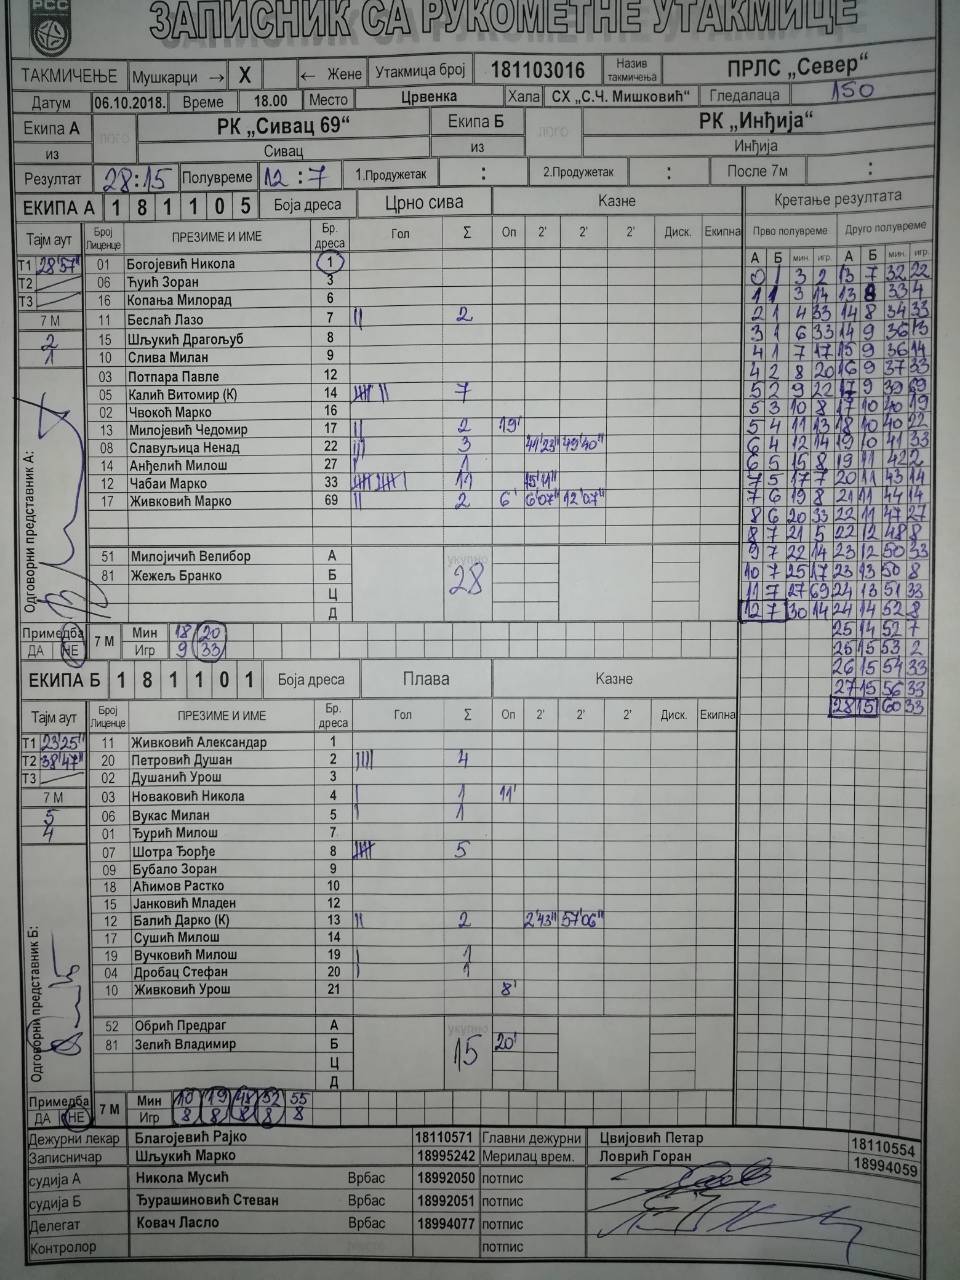 РСС
ЗАПИСНИК СА РУКОМЕТНЕ УТАКМИЦЕ
ТАКМИЧЕЊЕ Мушкарци → X ← Жене Утакмица број 181103016 Назив такмичења ПРЛС „Север“
Датум 06.10.2018. Време 18.00 Место Црвенка Хала СХ „С.Ч. Мишковић“ Гледалаца 150
Екипа А ЛОГО РК „Сивац 69“ Екипа Б ЛОГО РК „Инђија“
из Сивац из Инђија
Резултат 28:15 Полувреме 12:7 1.Продужетак : 2.Продужетак : После 7м :
ЕКИПА А 1 8 1 1 0 5 Боја дреса Црно сива Казне Кретање резултата
Тајм аут Број Лиценце ПРЕЗИМЕ И ИМЕ Бр. дреса Гол Σ Оп 2' 2' 2' Диск. Екипна Прво полувреме Друго полувреме
А Б мин. игр. А Б мин. игр.
Т1 28'57"
Т2
Т3
7 М
2
1
01 Богојевић Никола 1
06 Ђуић Зоран 3
16 Копања Милорад 6
11 Беслаћ Лазо 7 || 2
15 Шљукић Драгољуб 8
10 Слива Милан 9
03 Потпара Павле 12
05 Калић Витомир (К) 14 7
02 Чвокоћ Марко 16
13 Милојевић Чедомир 17 || 2 19'
08 Славуљица Ненад 22 ||| 3 41'23" 49'40"
14 Анђелић Милош 27 | 1
12 Чабаи Марко 33 11 15'11"
17 Живковић Марко 69 || 2 6' 6'07" 12'07"
51 Милојичић Велибор А укупно
81 Жежељ Бранко Б 28
Ц
Д
Одговорни представник А:
0 1 3 2 13 7 32 22
1 1 3 14 13 8 33 4
2 1 4 33 14 8 34 33
3 1 6 33 14 9 36 13
4 1 7 17 15 9 36 14
4 2 8 20 16 9 37 33
5 2 9 22 17 9 39 69
5 3 10 8 17 10 40 19
5 4 11 13 18 10 40 22
6 4 12 14 19 10 41 33
6 5 15 8 19 11 42 2
7 5 17 7 20 11 43 14
7 6 19 8 21 11 44 14
8 6 20 33 22 11 47 27
8 7 21 5 22 12 48 8
9 7 22 14 23 12 50 33
10 7 25 17 23 13 50 8
11 7 27 69 24 13 51 33
12 7 30 14 24 14 52 8
25 14 52 7
25 15 53 2
26 15 54 33
27 15 56 33
28 15 60 33
Примедба 7 М Мин 18 20
ДА НЕ Игр 9 33
ЕКИПА Б 1 8 1 1 0 1 Боја дреса Плава Казне
Тајм аут Број Лиценце ПРЕЗИМЕ И ИМЕ Бр. дреса Гол Σ Оп 2' 2' 2' Диск. Екипна
Т1 23'25"
Т2 38'47"
Т3
7 М
5
4
11 Живковић Александар 1
20 Петровић Душан 2 |||| 4
02 Душанић Урош 3
03 Новаковић Никола 4 | 1 11'
06 Вукас Милан 5 | 1
01 Ђурић Милош 7
07 Шотра Ђорђе 8 5
09 Бубало Зоран 9
18 Аћимов Растко 10
15 Јанковић Младен 12
12 Балић Дарко (К) 13 || 2 2'43" 57'06"
17 Сушић Милош 14
19 Вучковић Милош 19 | 1
04 Дробац Стефан 20 | 1
10 Живковић Урош 21 8'
52 Обрић Предраг А укупно
81 Зелић Владимир Б 15 20'
Ц
Д
Одговорни представник Б:
Примедба 7 М Мин 10 19 48 52 55
ДА НЕ Игр 8 8 8 8 8
Дежурни лекар Благојевић Рајко 18110571 Главни дежурни Цвијовић Петар 18110554
Записничар Шљукић Марко 18995242 Мерилац врем. Ловрић Горан 18994059
судија А Никола Мусић Врбас 18992050 потпис
судија Б Ђурашиновић Стеван Врбас 18992051 потпис
Делегат Ковач Ласло Врбас 18994077 потпис
Контролор потпис